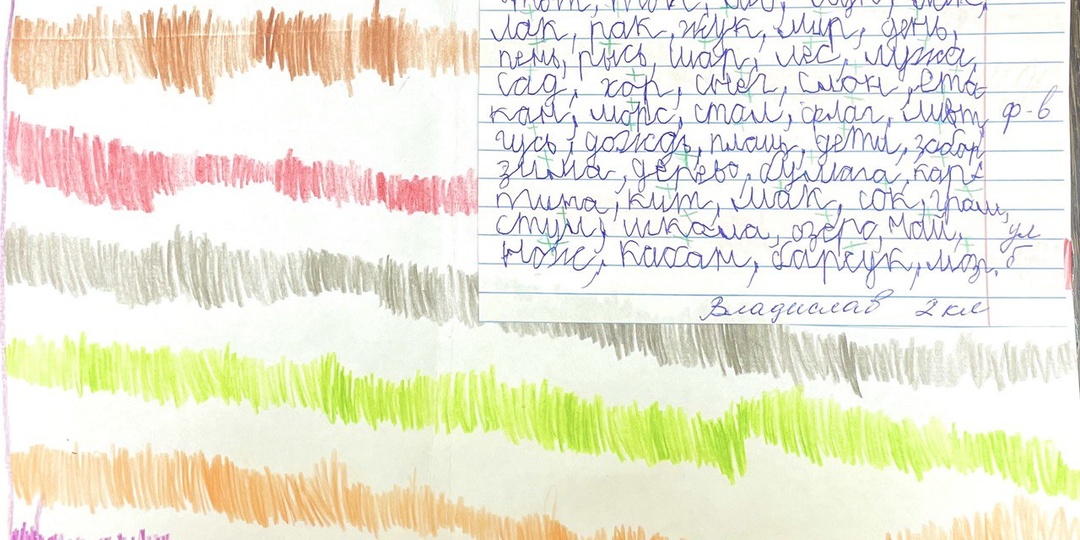 лак, рак, жук, мир, день,
пень, рысь, шар, лес, лужа,
сад, хор, снег, слон, ста-
кан, морс, стол, флаг, ф-в
гусь, дождь, плащ, дети, забор
зима, дерево, бумага, кар-
тина, кит, мак, сок, гром,
стул, шкала, озеро, май, ул
нож, кабан, барсук, моз. б
Владислав 2 кл